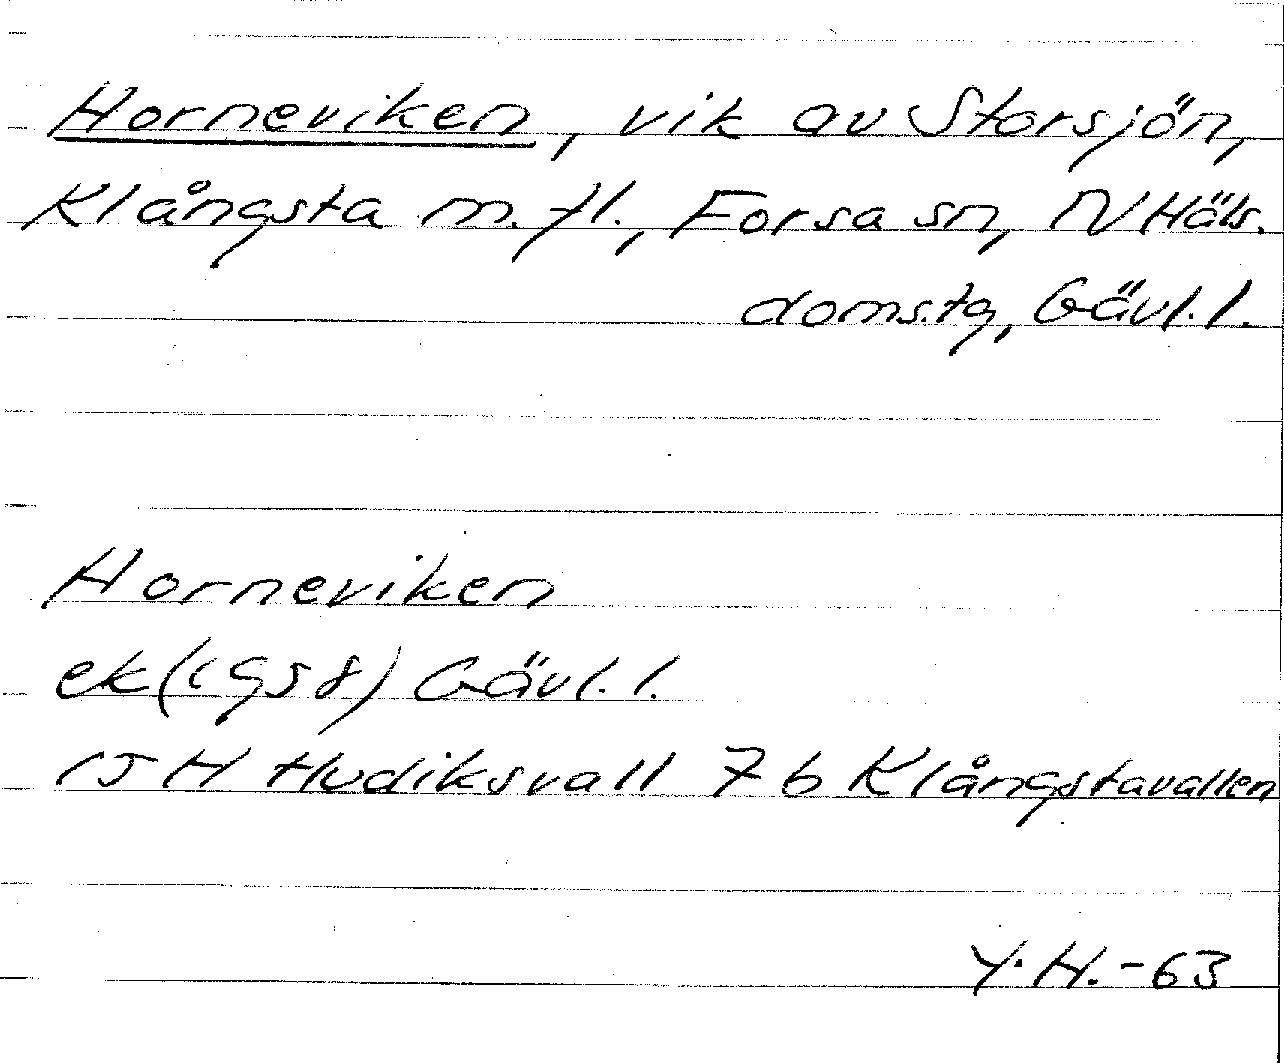 Horneviken, vik av Storsjön,
Klångsta m.fl., Forsa sn, N Häls.
doms.tg, Gävl.l.
Horneviken
ek(1958) Gävl.l.
15 H Hudiksvall 7 b Klångstavallen
Y.H.-63